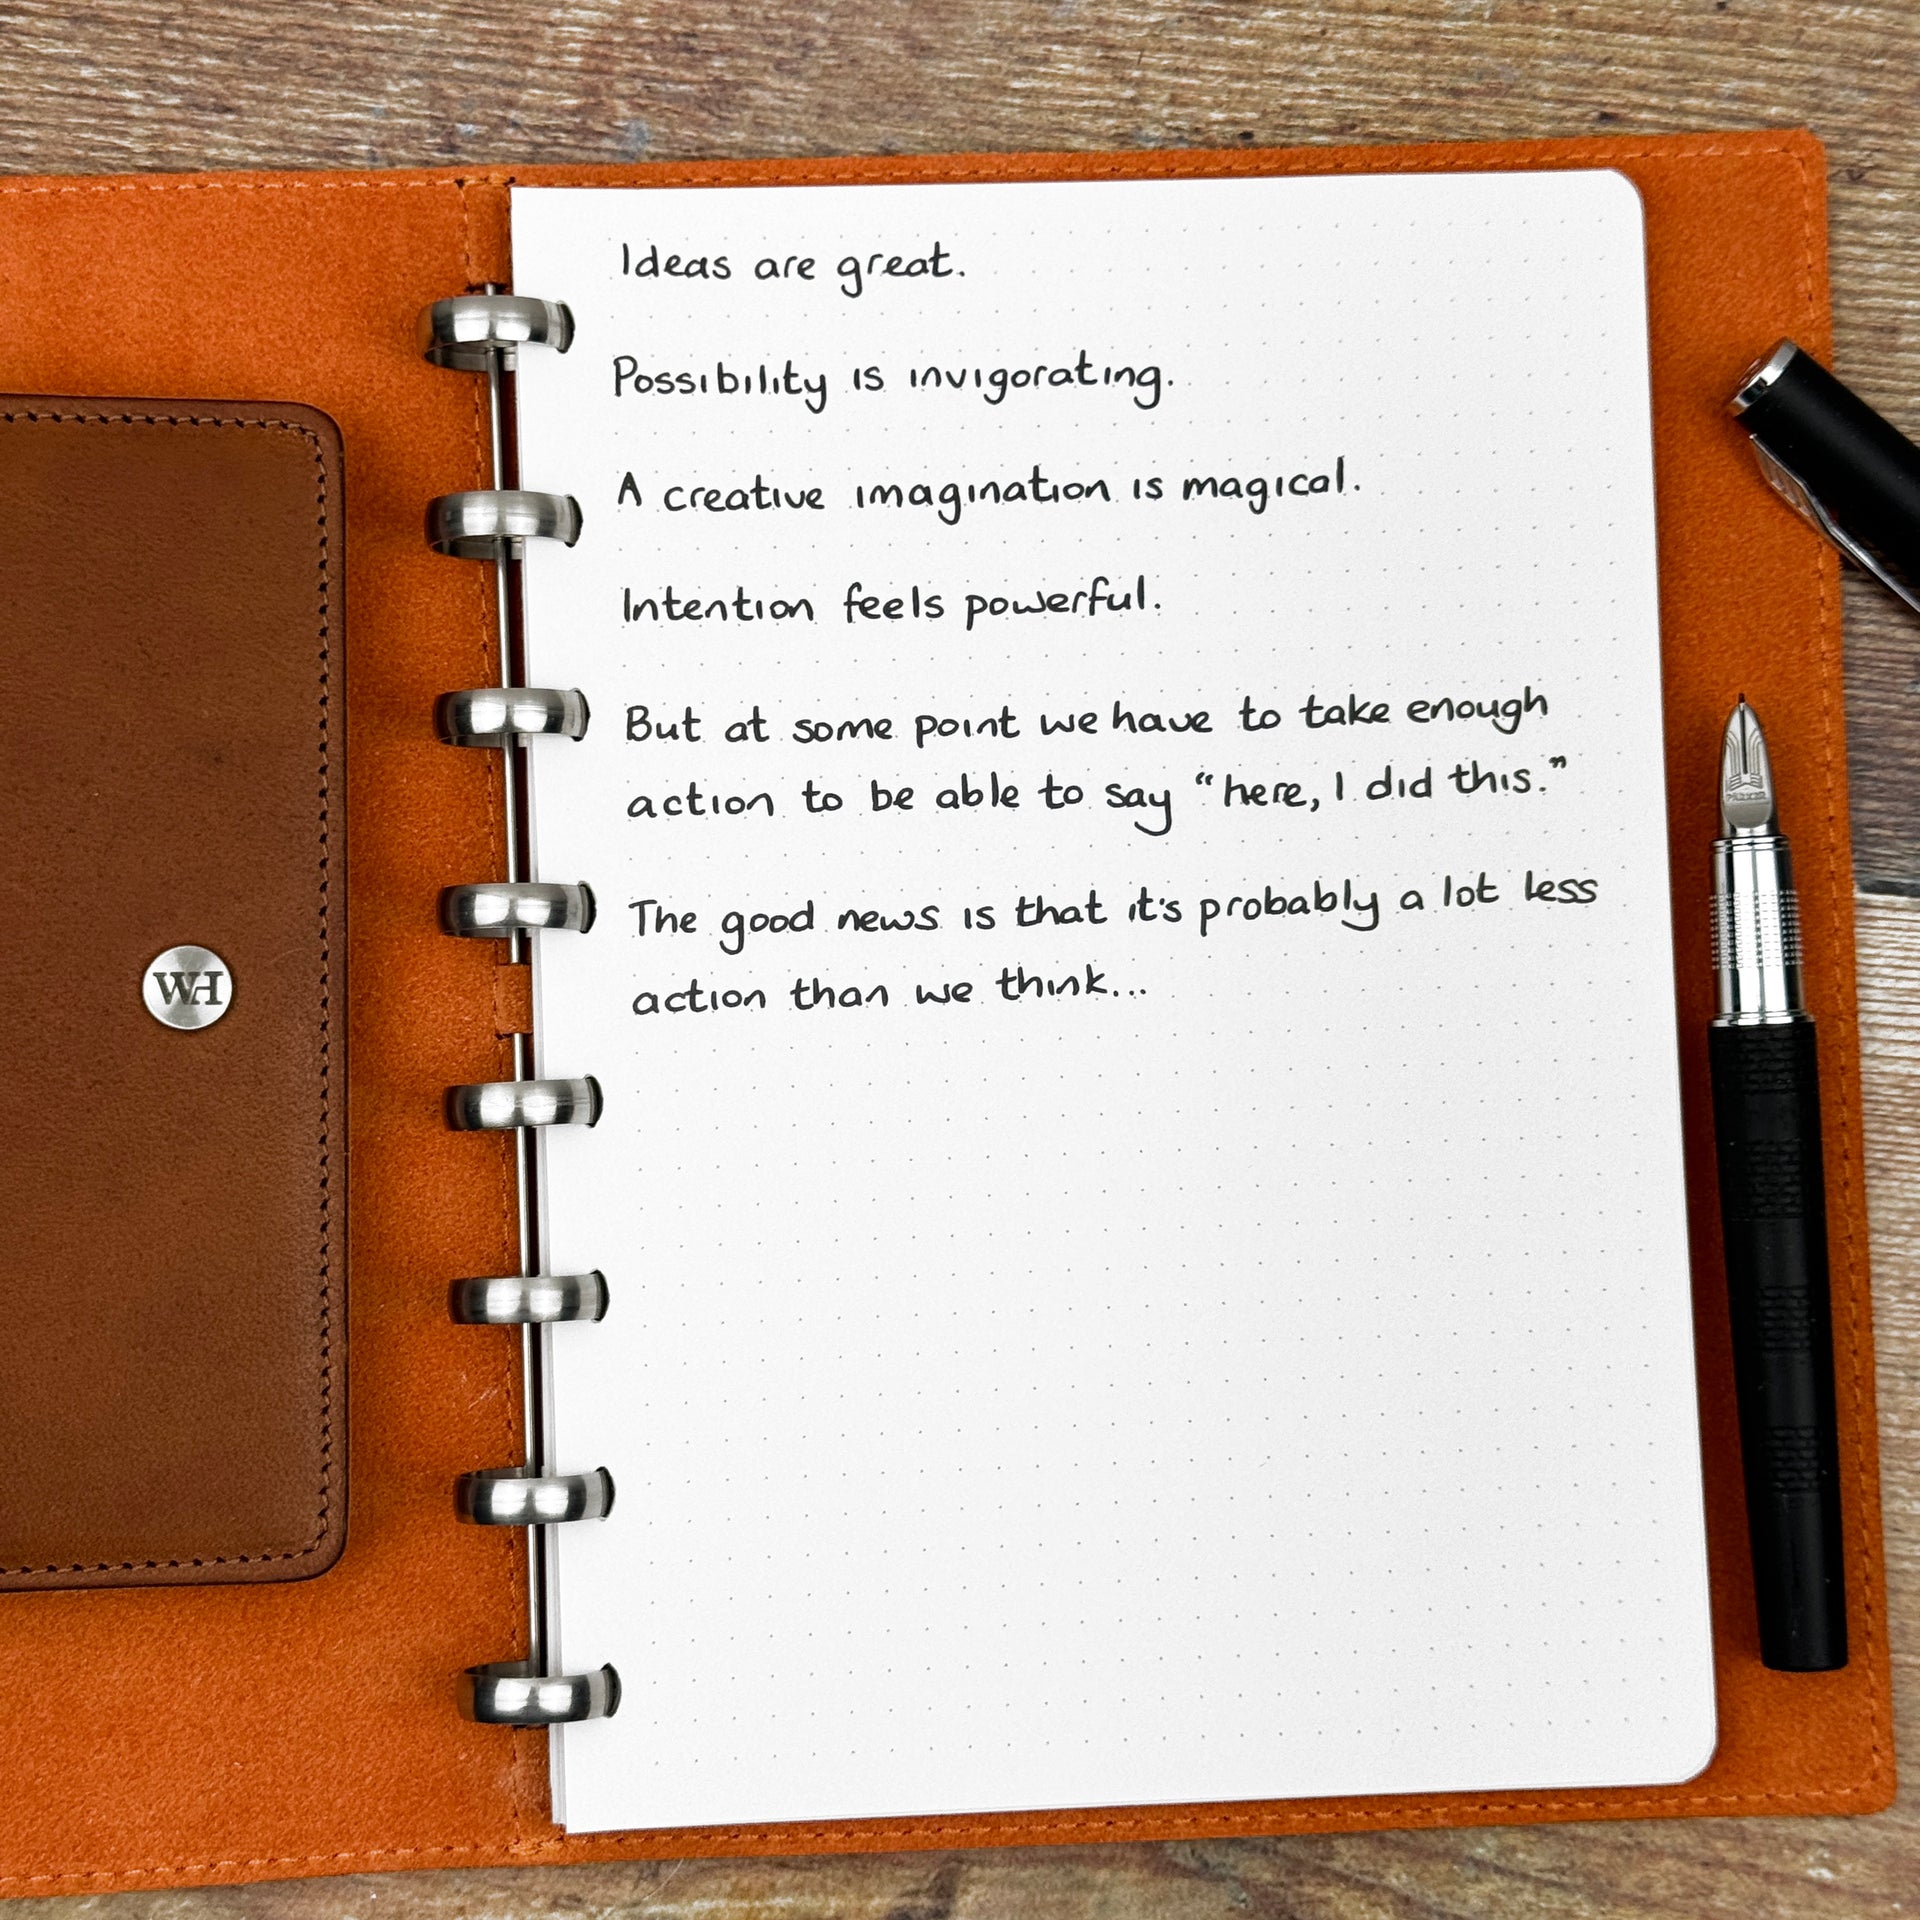 Ideas are great.
Possibility is invigorating.
A creative imagination is magical.
Intention feels powerful.
But at some point we have to take enough
action to be able to say “here, I did this.”
The good news is that it's probably a lot less
action than we think...
WH
PARKER